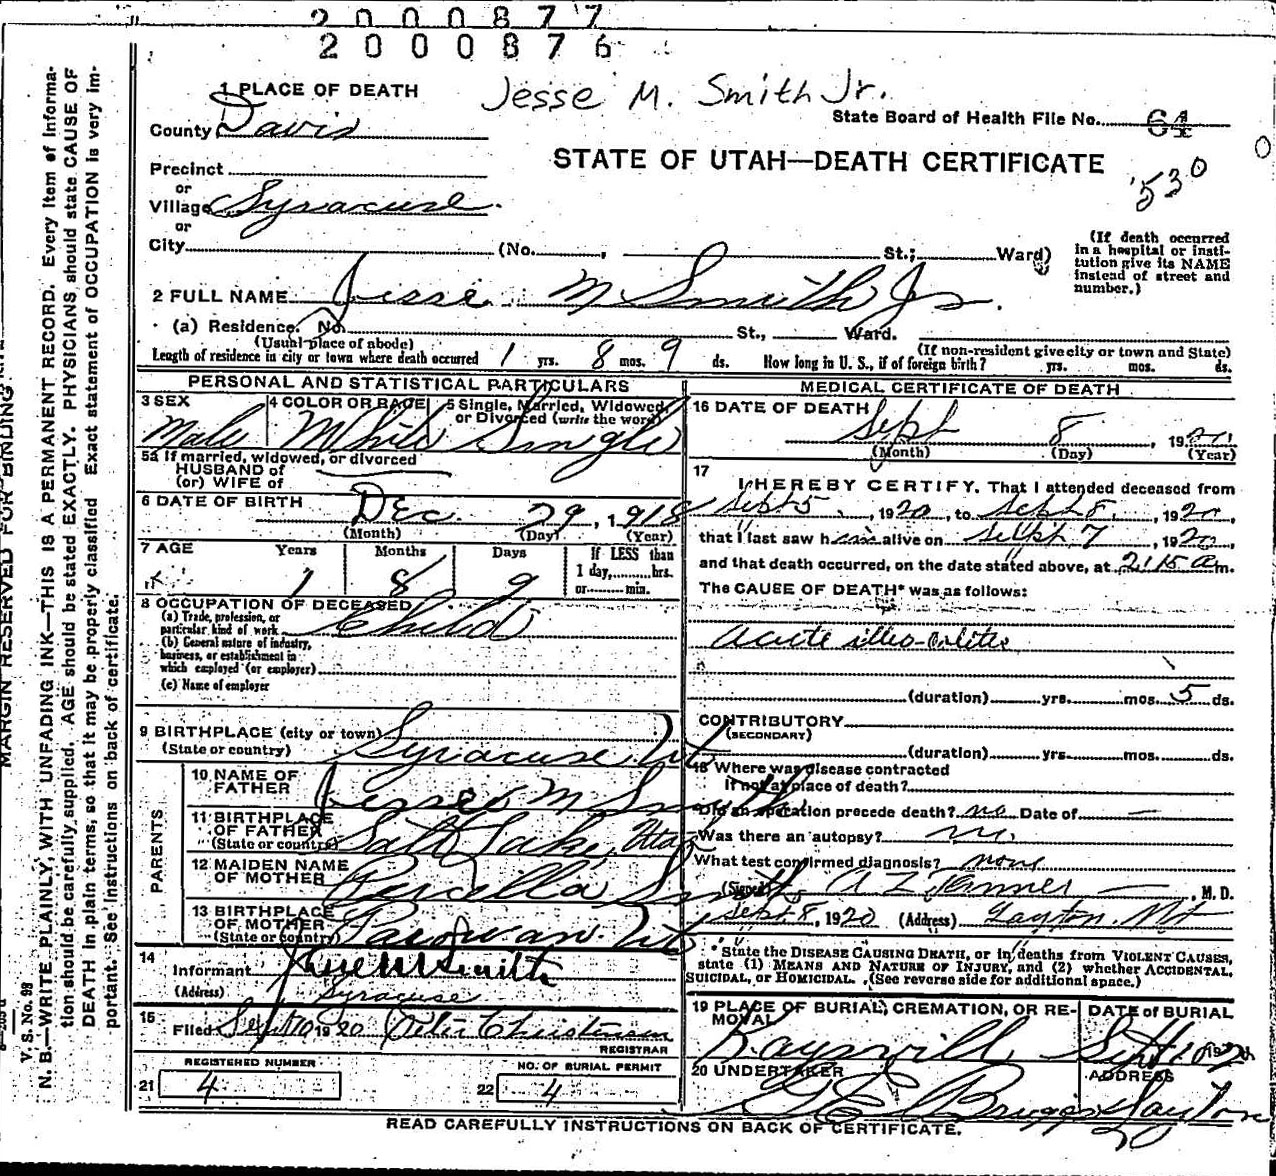 2000877
2000876
1 PLACE OF DEATH
Jesse M. Smith Jr.
State Board of Health File No. 64
County Davis
STATE OF UTAH—DEATH CERTIFICATE
530
Precinct
or
Village Syracuse
or
City (No. , St.; Ward)
(If death occurred in a hospital or institution give its NAME instead of street and number.)
2 FULL NAME Jesse M Smith Jr.
(a) Residence. No. St., Ward.
(Usual place of abode) (If non-resident give city or town and State)
Length of residence in city or town where death occurred 1 yrs. 8 mos. 9 ds. How long in U. S., if of foreign birth? yrs. mos. ds.
PERSONAL AND STATISTICAL PARTICULARS
3 SEX Male
4 COLOR OR RACE White
5 Single, Married, Widowed, or Divorced (write the word) Single
5a If married, widowed, or divorced
HUSBAND of
(or) WIFE of
6 DATE OF BIRTH Dec. 29, 1918
(Month) (Day) (Year)
7 AGE Years Months Days If LESS than
1 8 9 1 day, hrs.
or min.
8 OCCUPATION OF DECEASED
(a) Trade, profession, or particular kind of work Child
(b) General nature of industry, business, or establishment in which employed (or employer)
(c) Name of employer
9 BIRTHPLACE (city or town) Syracuse Ut
(State or country)
PARENTS
10 NAME OF FATHER Jesse M Smith
11 BIRTHPLACE OF FATHER Salt Lake, Utah
(State or country)
12 MAIDEN NAME OF MOTHER Percilla Smith
13 BIRTHPLACE OF MOTHER Parowan Ut
(State or country)
14 Informant Smith
(Address) Syracuse
15 Filed Sept 10 1920 Peter Christensen
REGISTRAR
REGISTERED NUMBER
21 4
NO. OF BURIAL PERMIT
22 4
MEDICAL CERTIFICATE OF DEATH
16 DATE OF DEATH Sept 8, 1920
(Month) (Day) (Year)
17 I HEREBY CERTIFY, That I attended deceased from
Sept 5, 1920, to Sept 8, 1920,
that I last saw him alive on Sept 7, 1920,
and that death occurred, on the date stated above, at 2:15 am.
The CAUSE OF DEATH* was as follows:
Acute illeo-colitis
(duration) yrs. mos. 5 ds.
CONTRIBUTORY
(SECONDARY)
(duration) yrs. mos. ds.
18 Where was disease contracted
if not at place of death?
Did an operation precede death? no Date of —
Was there an autopsy? no
What test confirmed diagnosis? none
(Signed) A Z Tanner, M. D.
Sept 8, 1920 (Address) Layton
*State the DISEASE CAUSING DEATH, or in deaths from VIOLENT CAUSES, state (1) MEANS AND NATURE OF INJURY, and (2) whether ACCIDENTAL, SUICIDAL, or HOMICIDAL. (See reverse side for additional space.)
19 PLACE OF BURIAL, CREMATION, OR REMOVAL Kaysvill
DATE of BURIAL Sept 10 1920
20 UNDERTAKER G E Briggs
ADDRESS Layton
READ CAREFULLY INSTRUCTIONS ON BACK OF CERTIFICATE.
MARGIN RESERVED FOR BINDING
V. S. No. 98
N. B.—WRITE PLAINLY, WITH UNFADING INK—THIS IS A PERMANENT RECORD. Every item of information should be carefully supplied. AGE should be stated EXACTLY. PHYSICIANS should state CAUSE OF DEATH in plain terms, so that it may be properly classified. Exact statement of OCCUPATION is very important. See instructions on back of certificate.